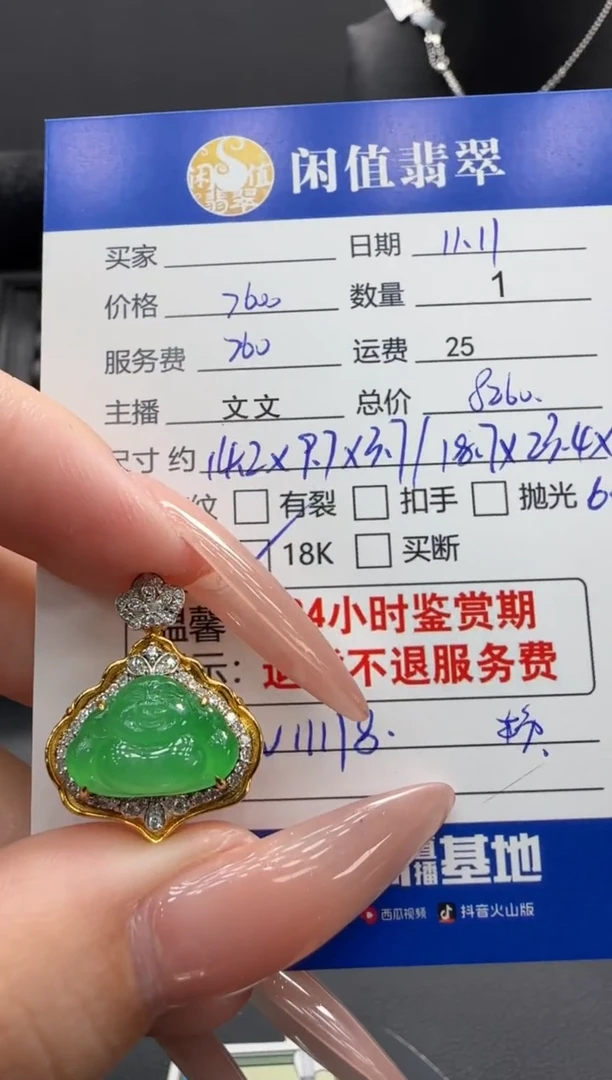 闲值翡翠
闲值翡翠
买家 日期 11.11
价格 7600 数量 1
服务费 760 运费 25
主播 文文 总价 8260.
尺寸 约 14.2×9.7×3.7/18.7×23.4×
纹 有裂 扣手 抛光 6
18K 买断
温馨 24小时鉴赏期
示： 不退服务费
基地
西瓜视频 抖音火山版